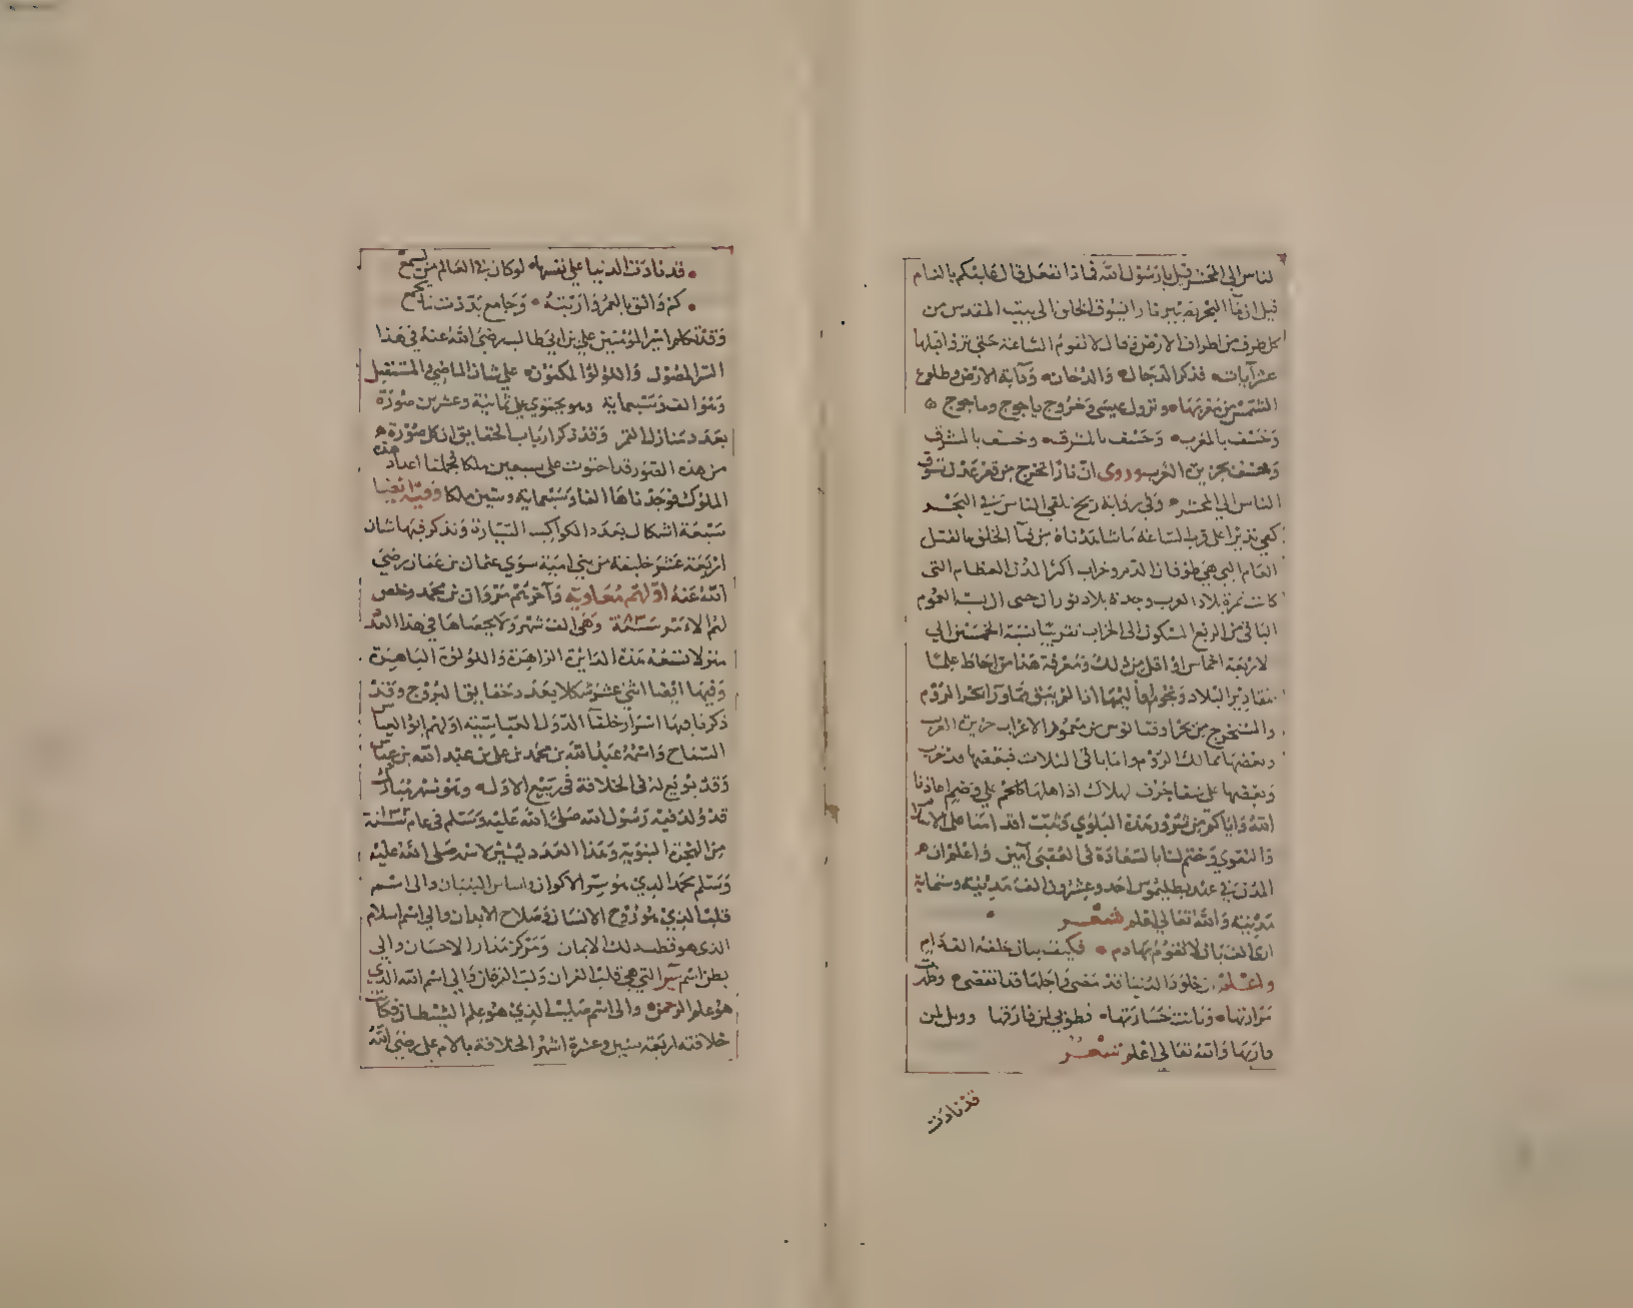 الناس الى المحشر قيل يا رسول الله فماذا نفعل قال عليكم بالشام
قيل انها البحر تصير نارا فيسوق الخلق الى بيت المقدس من
كل طرف من اطراف الارض وقال لا تقوم الساعة حتى تروا قبلها
عشر آيات فذكر الدجال والدخان ودابة الارض وطلوع
الشمس من مغربها ونزول عيسى وخروج ياجوج وماجوج
وخسف بالمغرب وخسف بالمشرق وخسف بالمشرق
وخسف بجزيرة العرب وروى ان نارا تخرج من قعر عدن تسوق
الناس الى المحشر وفي رواية ريح تلقي الناس في البحر
كفى نذيرا على قرب الساعة ما شاهدناه من فنآ الخلق بالقتل
العام الذي هو طوفان الدم وخراب اكثر المدن العظام التى
كانت ثمرة بلاد العرب وجدة بلاد توران حتى ال العموم
الباقي من الربع المسكون الى الخراب تقريبا نسبة الخمسين الى
الاربعة اخماس او اقل من ذلك ومعرفة هذا من احاط علما
بمقادير البلاد وتخوم اقاليمها اذا لم يبق مما ورآ بحر الروم
وبعضها ممالك الروم واما باقي الثلاث فبعضها قد خرب
وبعضها على شفا جرف لهلاك اذا هلها كلحم على وضم اعاذنا
الله واياكم من شرور هذه البلوى وثبت اقدامنا على الاسلام
والتقوى وختم لنا بالسعادة في العقبى آمين واعلم ان
المدن في عهد بطليموس احد وعشرون الف مدينة وستماية
مدينة والله تعالى اعلم شعر
ارى الف بان لا تقوم بهادم • فكيف ببان خلفه الف هادم
واعلم ان خلو ذا الدنيا قد مضى واجلها قد انقضى وظهرت
مرارتها وبانت خسارتها فطوبى لمن فارقها وويل لمن
قاربها والله تعالى اعلم شعر
قد نادت
• قد نادت الدنيا على نفسها • لو كان في العالم من يسمع
• كم واثق بالعمر واريته • وجامع بددت ما يجمع
وقد تكلم امير المؤمنين علي بن ابي طالب رضي الله عنه في هذا
السر المصون واللؤلؤ المكنون على شان الماضي والمستقبل
وهو الف وسبعماية وهو يحتوي على ثمانية وعشرين صورة
بعدد منازل القمر وقد ذكر ارباب الحقايق ان كل صورة
من هذه الصور قد احتوت على سبعين ملكا فجملنا اعداد هذه
الملوك فوجدناها الفا وسبعماية وستين ملكا وفيه ايضا
سبعة اشكال بعدد الكواكب السيارة ونذكر فيها شان
اربعة عشر خليفة من بني امية سوى عثمان بن عفان رضي
الله عنه اولهم معاوية وآخرهم مروان بن محمد وخلص
لهم الامر سنة وهي الف شهر ولا يجعلها في هذا العدد
منزلا لتتمة هذه الداير الزاهرة واللؤلؤة الباهرة
وفيها ايضا اثنى عشر شكلا بعدد دقايق البروج وقد
ذكرنا فيها اسرار خلفآ الدولة العباسية اولهم ابو العباس
السفاح واسمه عبد الله بن محمد بن علي بن عبد الله بن عباس
وقد بويع له في الخلافة في ربيع الاول وهو شهر مبارك
قد ولد فيه رسول الله صلى الله عليه وسلم في عام سنة
من الهجرة النبوية وهذا العدد يشير لاسمه صلى الله عليه
وسلم محمد الذي هو سر الاكوان واساس البنيان والى اسم
قلب الذي هو روح الانسان وصلاح الابدان والى اسم اسلام
الذي هو قطب ذلك الايمان ومركز مدار الاحسان والى
بطن اسم يس التي هي قلب القران ولب الفرقان والى اسم الله الذي
هو علم الرحمن والى اسم ابليس الذي هو علم الشيطان فكانت
خلافته اربعة سنين وعشرة اشهر الخلافة بالامام علي رضي الله